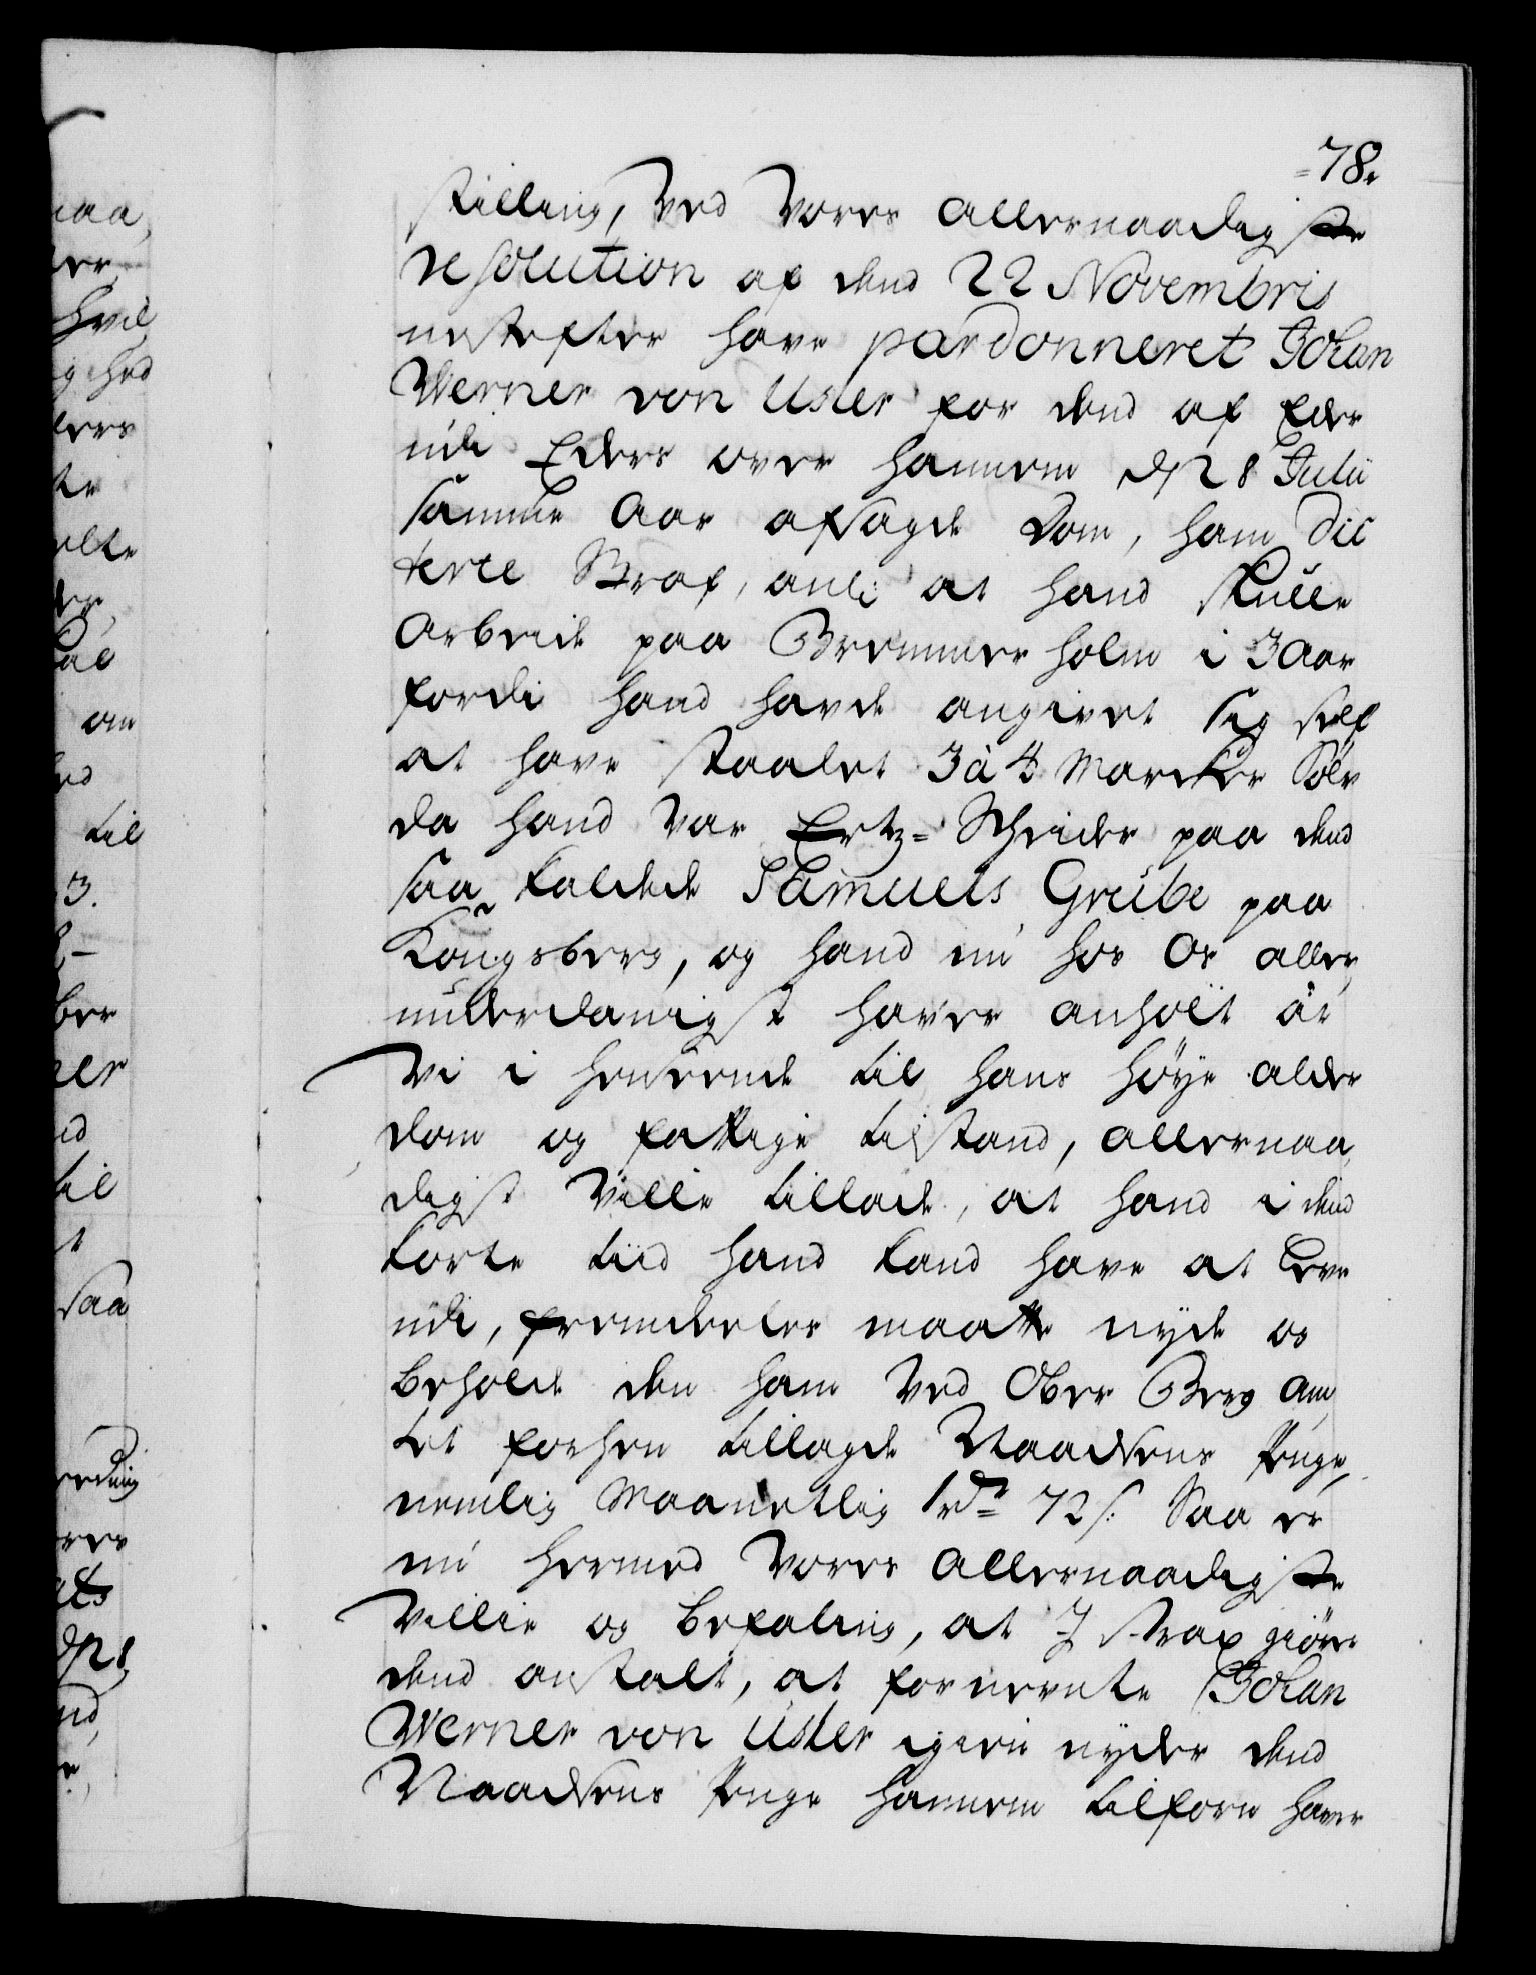 78.
stilling, Ved Vores allernaadigste
resolution af dend 22 Novembris
nestefter have pardonneret Johan
Werner von Usler for dend af Eder
udi Eders over hannem d. 28 Julii
samme Aar afsagde Dom, ham dic
terte Straf, at hand skulle
Arbeide paa Bremmerholm i 3 Aar
fordi hand havde angivet sig self
at have staalet 3 à 4 Marcker Sölv
da hand Var Ertz-Scheider paa dend
saa kaldede Samuels Grube paa
Kongsberg, og hand nu hos Os aller
underdanigst haver anholt at
Vi i henseende til hans höye alder
dom og fattige tilstand, allernaa
digst Ville tillade, at hand i dend
korte tiid hand kand have at leve
udi, fremdeeles maatte nyde og
beholde den ham Ved Ober Berg Am
tet forhen tillagde Naadsens Penge,
nemlig Maanetlig 1 rdr 72 s. Saa er
nu hermed Vores allernaadigste
Villie og befaling, at I strax giöre
dend anstalt, at fornevnte Johan
Werner von Usler igien nyder dend
Naadsens Penge hannem tilforn haver
naa
til
3.
til
saa